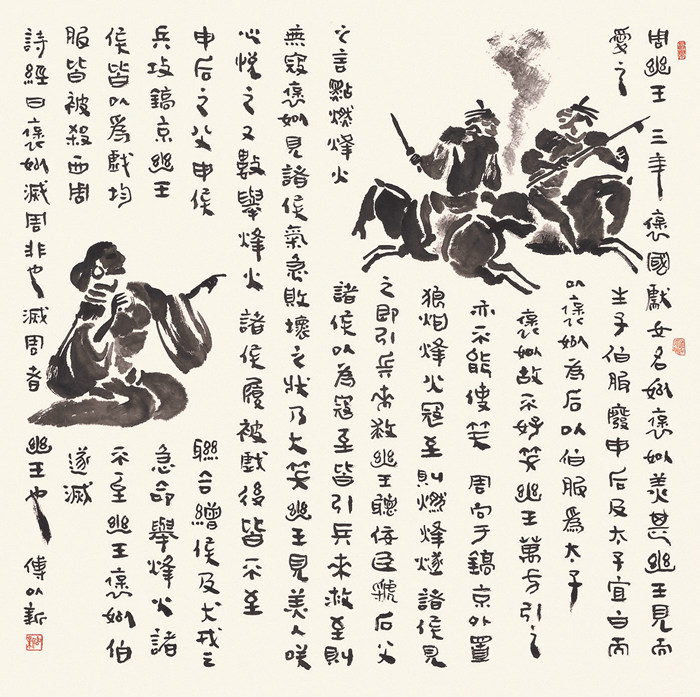 周幽王三年褒國獻女名姒褒姒美甚幽王見而
愛之生子伯服廢申后及太子宜臼而
以褒姒為后以伯服為太子
褒姒故不好笑幽王萬方引之
亦不能使笑周向于鎬京外置
狼烟烽火寇至則燃烽燧諸侯見
之即引兵來救幽王聽佞臣虢石父
之言點燃烽火諸侯以為寇至皆引兵來救至則
無寇褒姒見諸侯氣急敗壞之狀乃大笑幽王見美人咲
心悅之又數舉烽火諸侯屢被戲後皆不至
申后之父申侯聯合繒侯及犬戎之
兵攻鎬京幽王急命舉烽火諸
侯皆以為戲均不至幽王褒姒伯
服皆被殺西周遂滅
詩經曰褒姒滅周非也滅周者幽王也傅以新